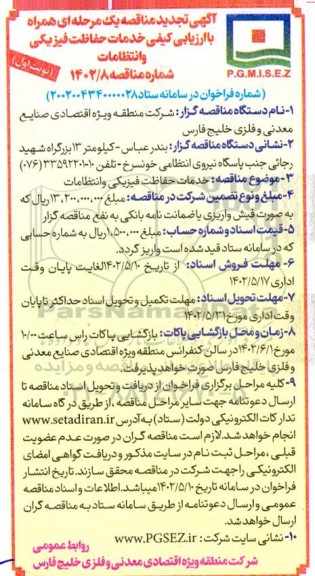 آگهی تجدید مناقصه یک مرحله ای همراه
با ارزیابی کیفی خدمات حفاظت فیزیکی
وانتظامات
(نوبت اول)
شماره مناقصه ۱۴۰۲/۸
P.G.M.I.S.E.Z
(شماره فراخوان در سامانه ستاد ۲۰۰۲۰۰۴۳۴۰۰۰۰۰۲۸)
۱-نام دستگاه مناقصه گزار: شرکت منطقه ویژه اقتصادی صنایع
معدنی و فلزی خلیج فارس
۲-نشانی دستگاه مناقصه گزار: بندرعباس -کیلومتر ۱۳ بزرگراه شهید
رجائی جنب پاسگاه نیروی انتظامی خونسرخ -تلفن ۱۰-۳۳۵۹۲۲۰۱ (۰۷۶)
۳-موضوع مناقصه: خدمات حفاظت فیزیکی وانتظامات
۴-مبلغ و نوع تضمین شرکت در مناقصه: مبلغ ۱۳,۲۰۰,۰۰۰,۰۰۰ ریال که
به صورت فیش واریزی یا ضمانت نامه بانکی به نفع مناقصه گزار
۵-قیمت اسناد و شماره حساب: مبلغ ۱,۵۰۰,۰۰۰ ریال به شماره حسابی
که در سامانه ستاد قید شده است واریز گردد.
۶- مهلت فروش اسناد: از تاریخ ۱۴۰۲/۵/۱۰ لغایت پایان وقت
اداری ۱۴۰۲/۵/۱۷
۷-مهلت تحویل اسناد: مهلت تکمیل و تحویل اسناد حداکثر تا پایان
وقت اداری مورخ ۱۴۰۲/۵/۳۱
۸-زمان و محل بازگشایی پاکات: بازگشایی پاکات راس ساعت ۱۰/۰۰
مورخ ۱۴۰۲/۶/۱ در سالن کنفرانس منطقه ویژه اقتصادی صنایع معدنی و
فلزی خلیج فارس صورت خواهد پذیرفت.
۹-کلیه مراحل برگزاری فراخوان از دریافت و تحویل اسناد مناقصه تا
ارسال دعوتنامه جهت سایر مراحل مناقصه ،از طریق درگاه سامانه
تدارکات الکترونیکی دولت (ستاد) به آدرس www.setadiran.ir
انجام خواهد شد. لازم است مناقصه گران در صورت عدم عضویت
قبلی ،مراحل ثبت نام در سایت مذکور و دریافت گواهی امضای
الکترونیکی را جهت شرکت در مناقصه محقق سازند. تاریخ انتشار
فراخوان در سامانه تاریخ ۱۴۰۲/۵/۱۰ میباشد. اطلاعات و اسناد مناقصه
عمومی و ارسال دعوتنامه از طریق سامانه ستاد به مناقصه گران
ارسال خواهد شد.
۱۰-نشانی سایت شرکت: www.PGSEZ.ir
روابط عمومی
شرکت منطقه ویژه اقتصادی معدنی و فلزی خلیج فارس